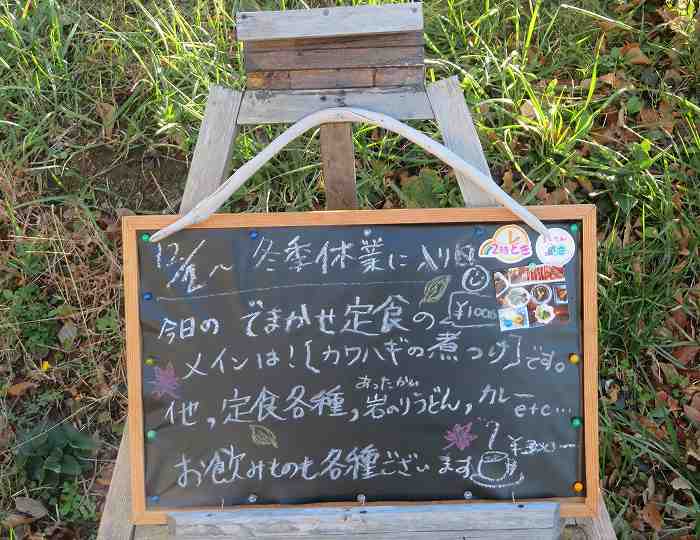 12/1～冬季休業に入り
今日の でまかせ定食の ¥1000
メインは！〔カワハギの煮つけ〕です。
あったかい
他,定食各種,岩のりうどん,カレー
etc…
お飲みものも各種ございます ¥300～